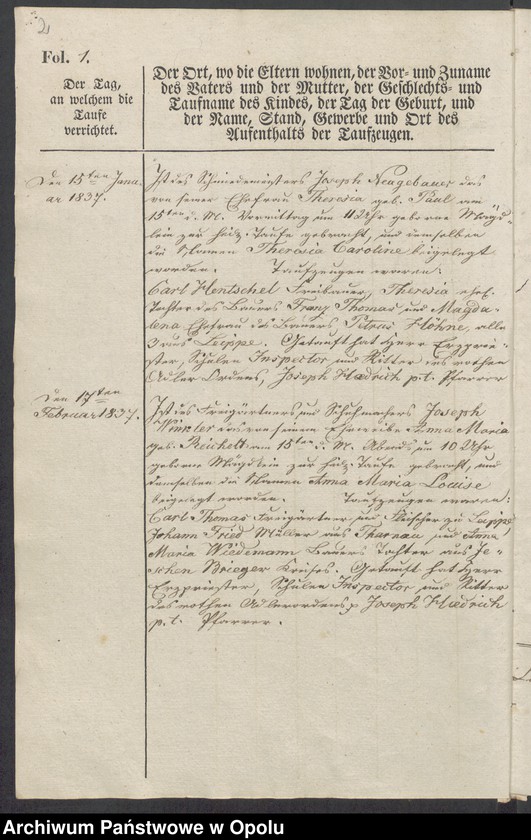 2
Fol. 1.
Der Tag,
an welchem die
Taufe
verrichtet.
Der Ort, wo die Eltern wohnen, der Vor- und Zuname
des Vaters und der Mutter, der Geschlechts- und
Taufname des Kindes, der Tag der Geburt, und
der Name, Stand, Gewerbe und Ort des
Aufenthalts der Taufzeugen.
Den 15ten Janu-
ar 1837.
Ist des Schmiedemeisters Joseph Neugebauer das
von seiner Ehefrau Theresia geb. Paul am
15ten d. M. Vormittag um Uhr geborne Mägd-
lein zur Taufe gebracht, und demselben
die Namen Theresia Caroline beigelegt
worden. Taufzeugen waren:
Carl Hentschel Freibauer, Theresia
Tochter des Bauers Franz Thomas, und Magda-
lena Ehefrau des Bauers Petrus Höhne, alle
aus Leippe. Getauft hat Herr Erzprie-
ster, Schulen Inspector und Ritter des rothen
Adler Ordens, Joseph Hedrich p. t. Pfarrer
Den 17ten
Februar 1837.
Ist des Freigärtners und Schuhmachers Joseph
Winkler das von seinem Eheweibe Anna Maria
geb. Reichelt am 15ten d. M. Abends um 10 Uhr
geborne Mägdlein zur Taufe gebracht, und
demselben die Namen Anna Maria Louise
beigelegt worden. Taufzeugen waren:
Carl Thomas Freigärtner und Fleischer zu Leippe,
Johann Fried Müller aus Tharnau und Anna
Maria Wiedemann Bauers Tochter aus Je-
schen Brieger Kreises. Getauft hat Herr
Erzpriester, Schulen Inspector und Ritter
des rothen Adlerordens p Joseph Hedrich
p. t. Pfarrer.
Archiwum Państwowe w Opolu